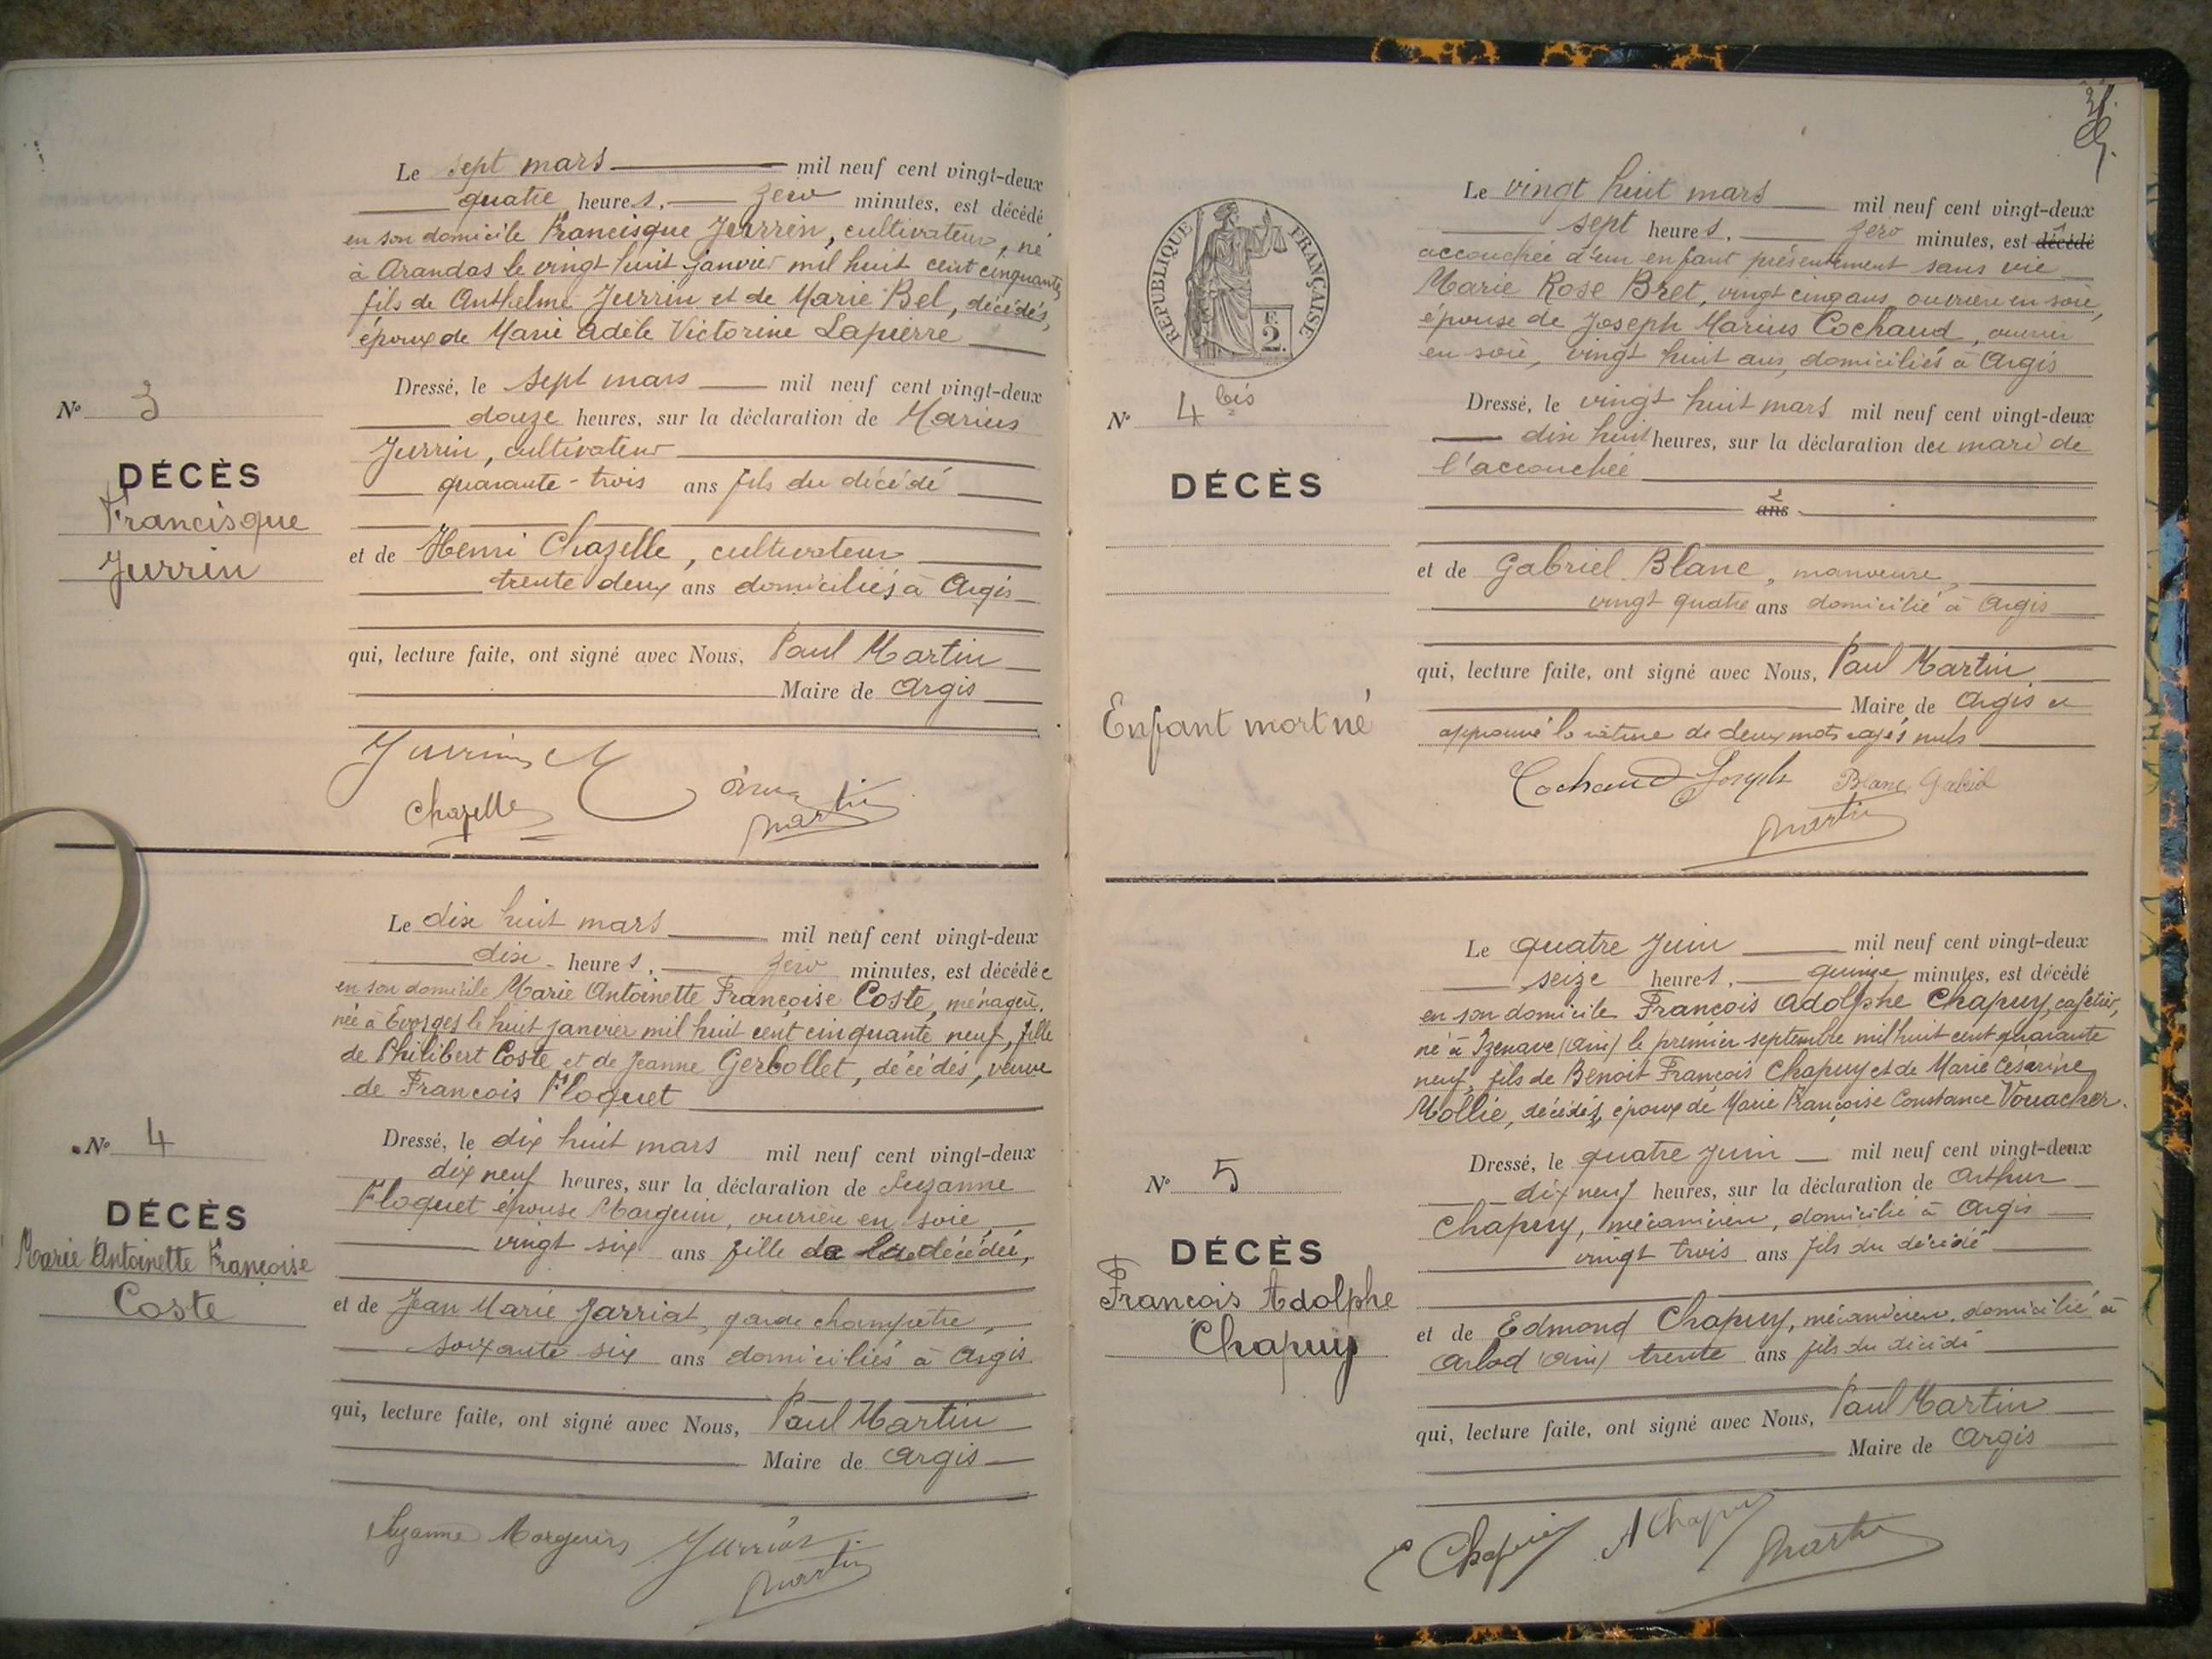 Le sept mars mil neuf cent vingt-deux
quatre heures, zero minutes, est décédé
en son domicile Francisque Jurrin, cultivateur, né
à Arandas le vingt huit janvier mil huit cent cinquante,
fils de Anthelme Jurrin et de Marie Bel, décédés,
époux de Marie Adèle Victorine Lapierre
Dressé, le sept mars mil neuf cent vingt-deux
douze heures, sur la déclaration de Marius
Jurrin, cultivateur
quarante-trois ans fils du décédé
et de Henri Chazelle, cultivateur
trente deux ans domiciliés à Argis
qui, lecture faite, ont signé avec Nous, Paul Martin
Maire de Argis
No 3
DÉCÈS
Francisque
Jurrin
Jurrin M
Chazelle
Martin
Le dix huit mars mil neuf cent vingt-deux
dix heures, zero minutes, est décédée
en son domicile Marie Antoinette Françoise Coste, ménagère,
née à Evosges le huit janvier mil huit cent cinquante neuf, fille
de Philibert Coste et de Jeanne Gerbollet, décédés, veuve
de François Floquet
Dressé, le dix huit mars mil neuf cent vingt-deux
dix neuf heures, sur la déclaration de Suzanne
Floquet épouse Marguin, ouvrière en soie,
vingt six ans fille de la décédée,
et de Jean Marie Jarriat, garde champêtre,
soixante six ans domiciliés à Argis
qui, lecture faite, ont signé avec Nous, Paul Martin
Maire de Argis
No 4
DÉCÈS
Marie Antoinette Françoise
Coste
Suzanne Marguin
Martin
RÉPUBLIQUE FRANÇAISE
F.
2.
Le vingt huit mars mil neuf cent vingt-deux
sept heures, zero minutes, est décédé
accouchée d'un enfant présentement sans vie
Marie Rose Bret, vingt cinq ans, ouvrière en soie,
épouse de Joseph Marius Cochaud, ouvrier
en soie, vingt huit ans, domiciliés à Argis
Dressé, le vingt huit mars mil neuf cent vingt-deux
dix huit heures, sur la déclaration du mari de
l'accouchée
ans
et de Gabriel Blanc, manœuvre,
vingt quatre ans domicilié à Argis
qui, lecture faite, ont signé avec Nous, Paul Martin
Maire de Argis
approuvé la rature de deux mots rayés nuls
No 4 bis
DÉCÈS
Enfant mort né
Cochaud Joseph Blanc Gabriel
Martin
Le quatre Juin mil neuf cent vingt-deux
seize heures, quinze minutes, est décédé
en son domicile François Adolphe Chapuy, cafetier,
né à Izenave (Ain) le premier septembre mil huit cent quarante
neuf, fils de Benoit François Chapuy et de Marie Césarine
Mollie, décédés, époux de Marie Françoise Constance Vouacher.
Dressé, le quatre Juin mil neuf cent vingt-deux
dix neuf heures, sur la déclaration de Arthur
Chapuy, mécanicien, domicilié à Argis
vingt trois ans fils du décédé
et de Edmond Chapuy, mécanicien, domicilié à
Arlod (Ain) trente ans fils du décédé
qui, lecture faite, ont signé avec Nous, Paul Martin
Maire de Argis
No 5
DÉCÈS
François Adolphe
Chapuy
E Chapuy A Chapuy Martin